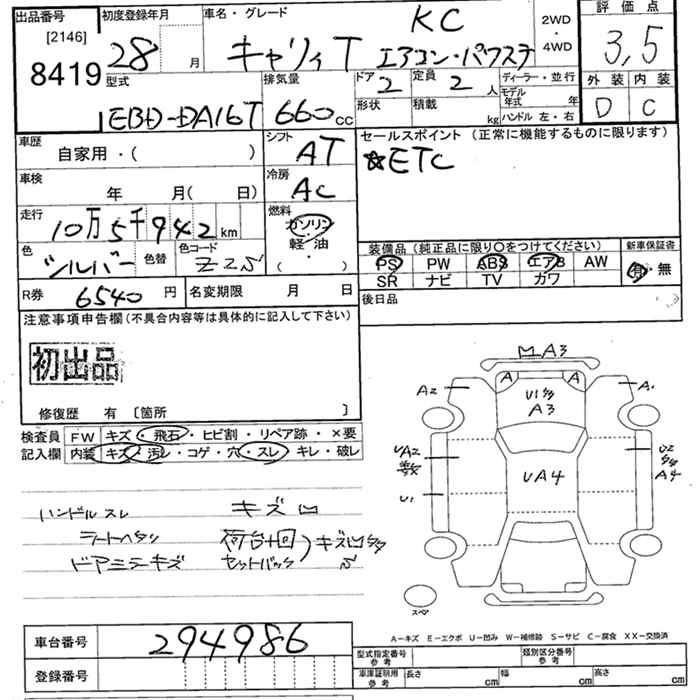 出品番号 初度登録年月 車名・グレード KC 2WD・4WD 評価点
[2146] 8419 28 月 キャリイ T エアコン・パワステ 3,5
型式 排気量 ドア 2 定員 2 人 ディーラー・並行 外装 内装
EBD-DA16T 660 cc 形状 積載 kg モデル年式 年 ハンドル 左・右 D C
車歴 自家用・( ) シフト AT セールスポイント(正常に機能するものに限ります)
☆ETC
車検 年 月( 日) 冷房 AC
走行 10万5千942 km 燃料 ガソリン 軽油 ( )
色 シルバー 色替 色コード Z2S
装備品(純正品に限り○をつけてください) 新車保証書
PS PW ABS エアB AW 有・無
SR ナビ TV カワ
R券 6540 円 名変期限 月 日 後日品
注意事項申告欄(不具合内容等は具体的に記入して下さい)
初出品
修復歴 有 〔箇所 〕
検査員 FW キズ・飛石・ヒビ割・リペア跡・×要
記入欄 内装 キズ・汚レ・コゲ・穴・スレ・キレ・破レ
ハンドル スレ キズ凹
シートヘタリ 荷台
ドアミラーキズ セットバック
A3
A2 A A A
U1 A3
UA2 UA4 U2 A4
U1
スペア
A-キズ E-エクボ U-凹み W-補修跡 S-サビ C-腐食 XX-交換済
車台番号 294986
登録番号
型式指定番号 参考 類別区分番号 参考
車庫証明用 参考 長さ cm 幅 cm 高さ cm